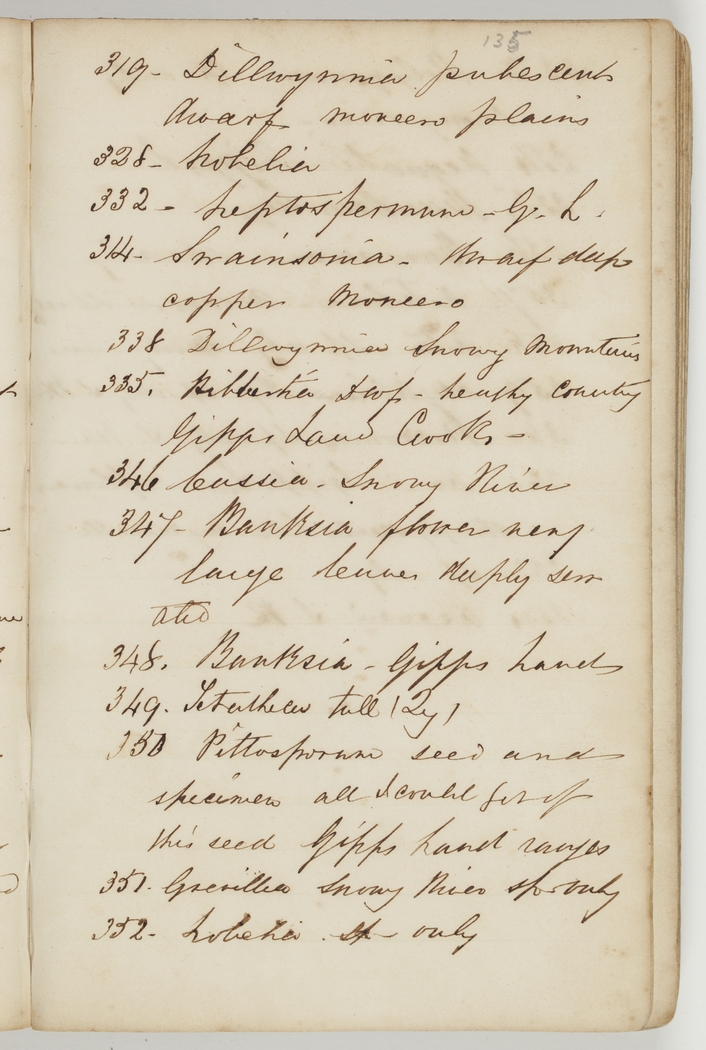 135
319- Dillwynnia pubescent
dwarf moneero plains
328- Lobelia
332- Leptospermum - G. L.
314- Swainsonia - dwarf deep
copper Moneero
338 Dillwynnia Snowy Mountains
335. Hibbertia dwf - heathy country
Gipps Land Crooks -
346 Cassia - Snowy River
347- Banksia flower very
large leaves deeply serr
ated
348. Banksia - Gipps Land
349. Tetratheca tall (2y)
350 Pittosporum seed and
specimen all I could get of
this seed Gipps Land ranges
351. Grevillea Snowy River sp only
352- Lobelia . sp - only